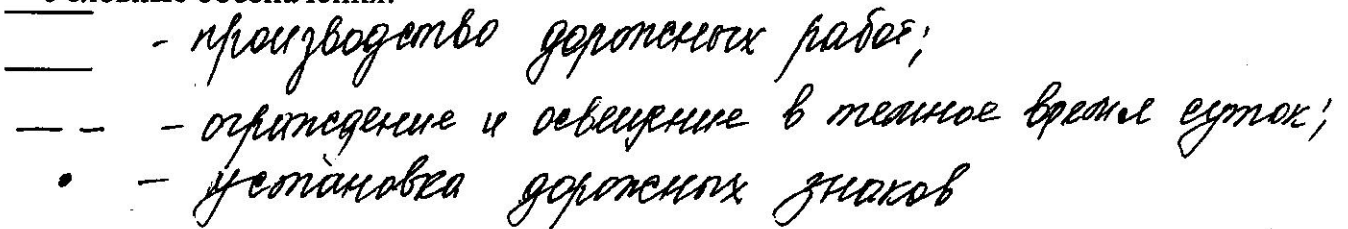 Условные обозначения:
- производство дорожных работ;
- ограждение и освещение в темное время суток;
- установка дорожных знаков